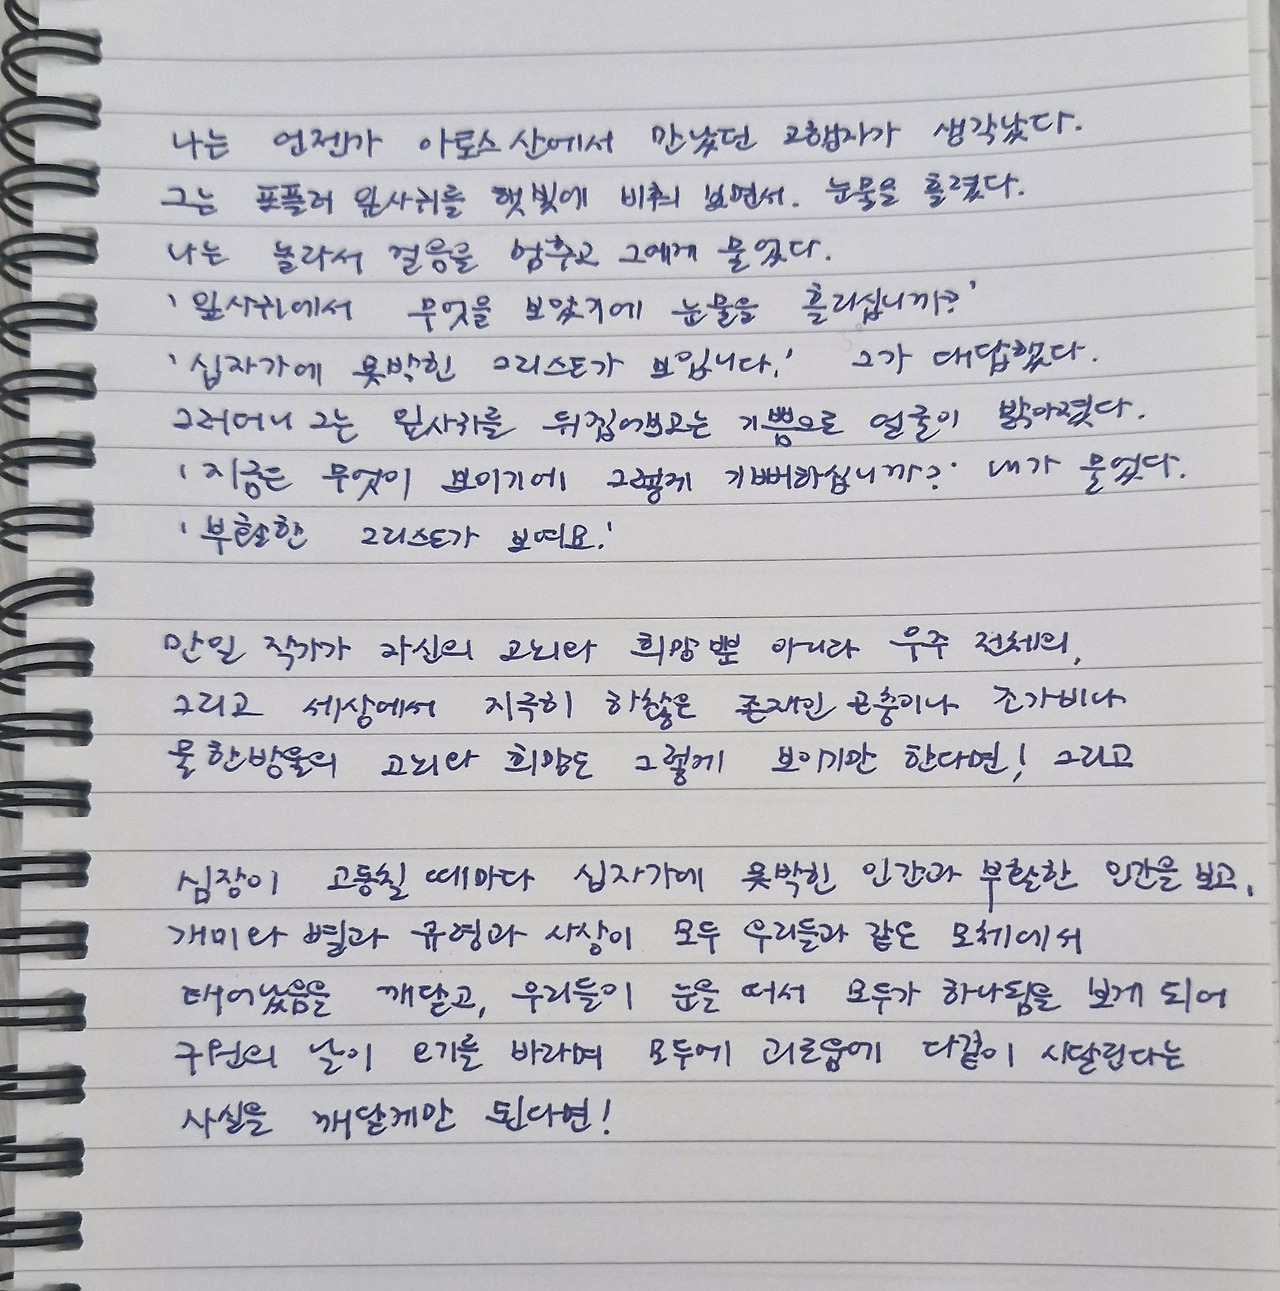 나는 언젠가 아토스 산에서 만났던 고행자가 생각났다.
그는 포플러 잎사귀를 햇빛에 비춰 보면서. 눈물을 흘렸다.
나는 놀라서 걸음을 멈추고 그에게 물었다.
'잎사귀에서 무엇을 보았기에 눈물을 흘리십니까?'
'십자가에 못박힌 그리스도가 보입니다.' 그가 대답했다.
그러더니 그는 잎사귀를 뒤집어보고는 기쁨으로 얼굴이 밝아졌다.
'지금은 무엇이 보이기에 그렇게 기뻐하십니까?' 내가 물었다.
'부활한 그리스도가 보여요.'
만일 작가가 자신의 고뇌와 희망뿐 아니라 우주 전체의,
그리고 세상에서 지극히 하찮은 존재인 곤충이나 조가비나
물 한방울의 고뇌와 희망도 그렇게 보이기만 한다면! 그리고
심장이 고동칠 때마다 십자가에 못박힌 인간과 부활한 인간을 보고,
개미와 별과 유령과 사상이 모두 우리들과 같은 모체에서
태어났음을 깨닫고, 우리들이 눈을 떠서 모두가 하나됨을 보게 되어
구원의 날이 오기를 바라며 모두에 괴로움에 다같이 시달린다는
사실을 깨닫게만 된다면!